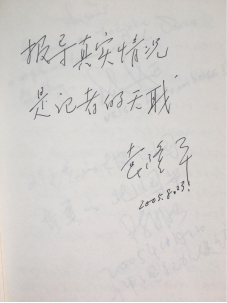 报导真实情况
是记者的天职
袁隆平
2005.8.23!